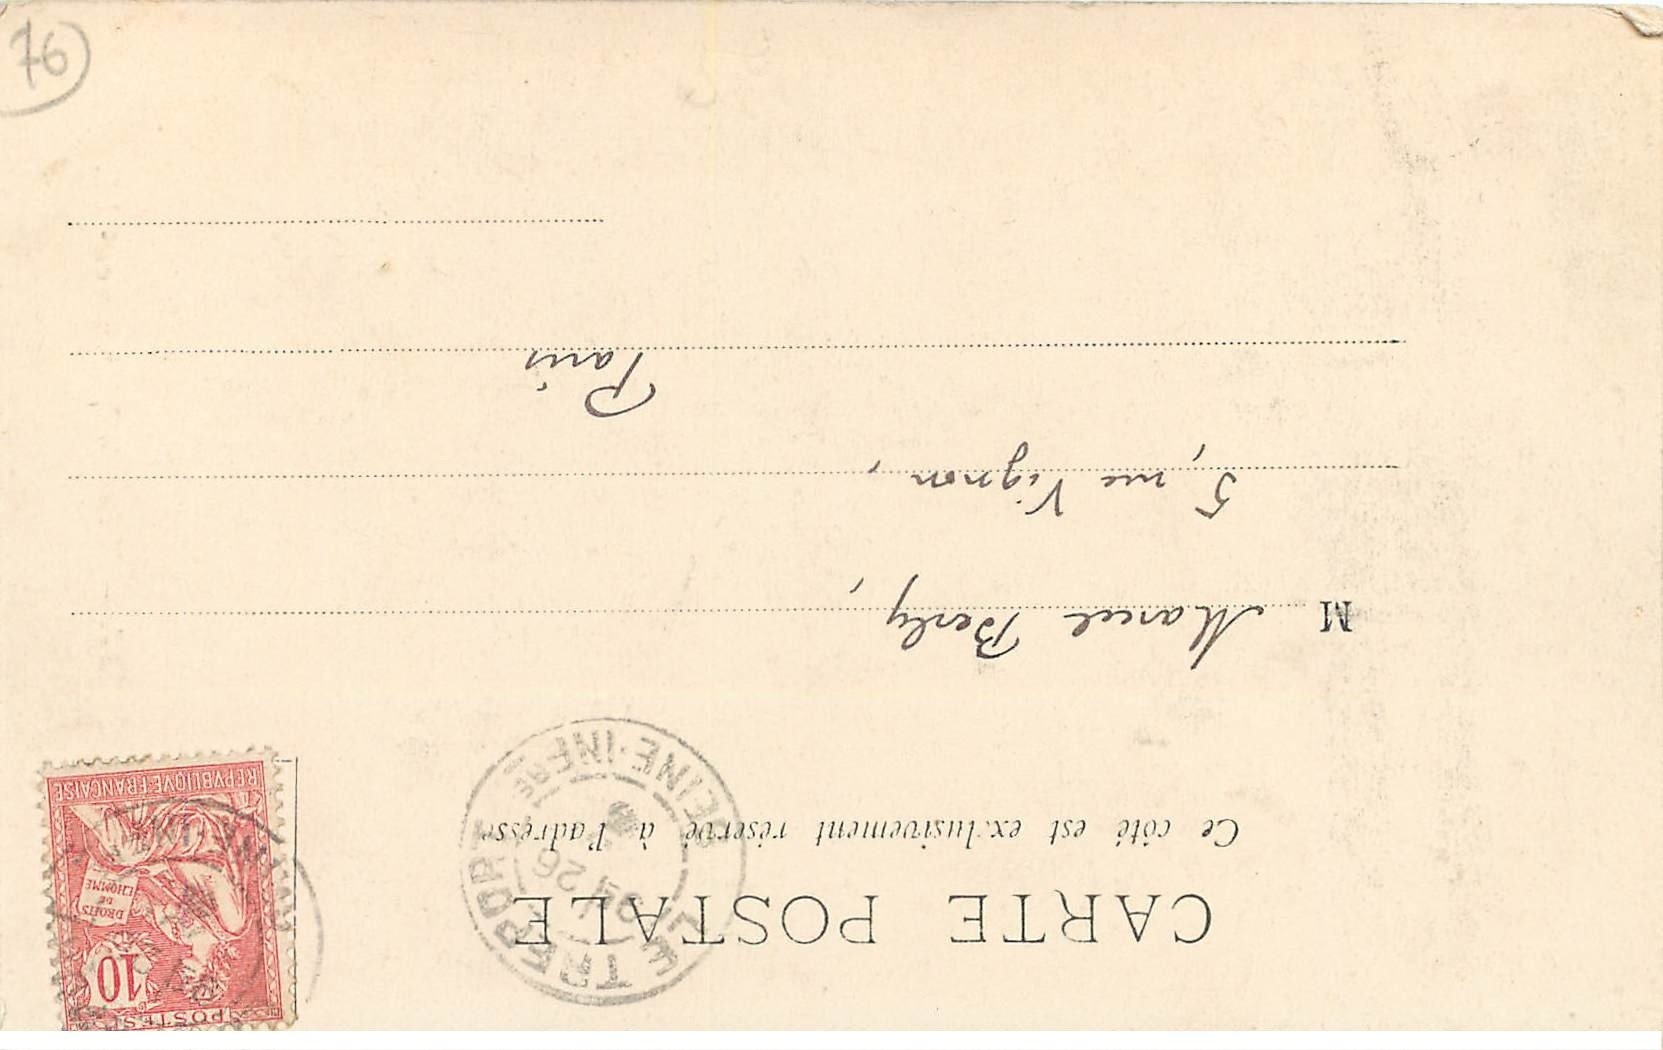 CARTE POSTALE
Ce côté est exclusivement réservé à l'adresse
M Marcel Berly,
5, rue Vignon,
Paris
LE TREPORT
26
SEINE-INFRE
POSTES
10
DROITS
DE
L'HOMME
REPVBLIQVE FRANÇAISE
76